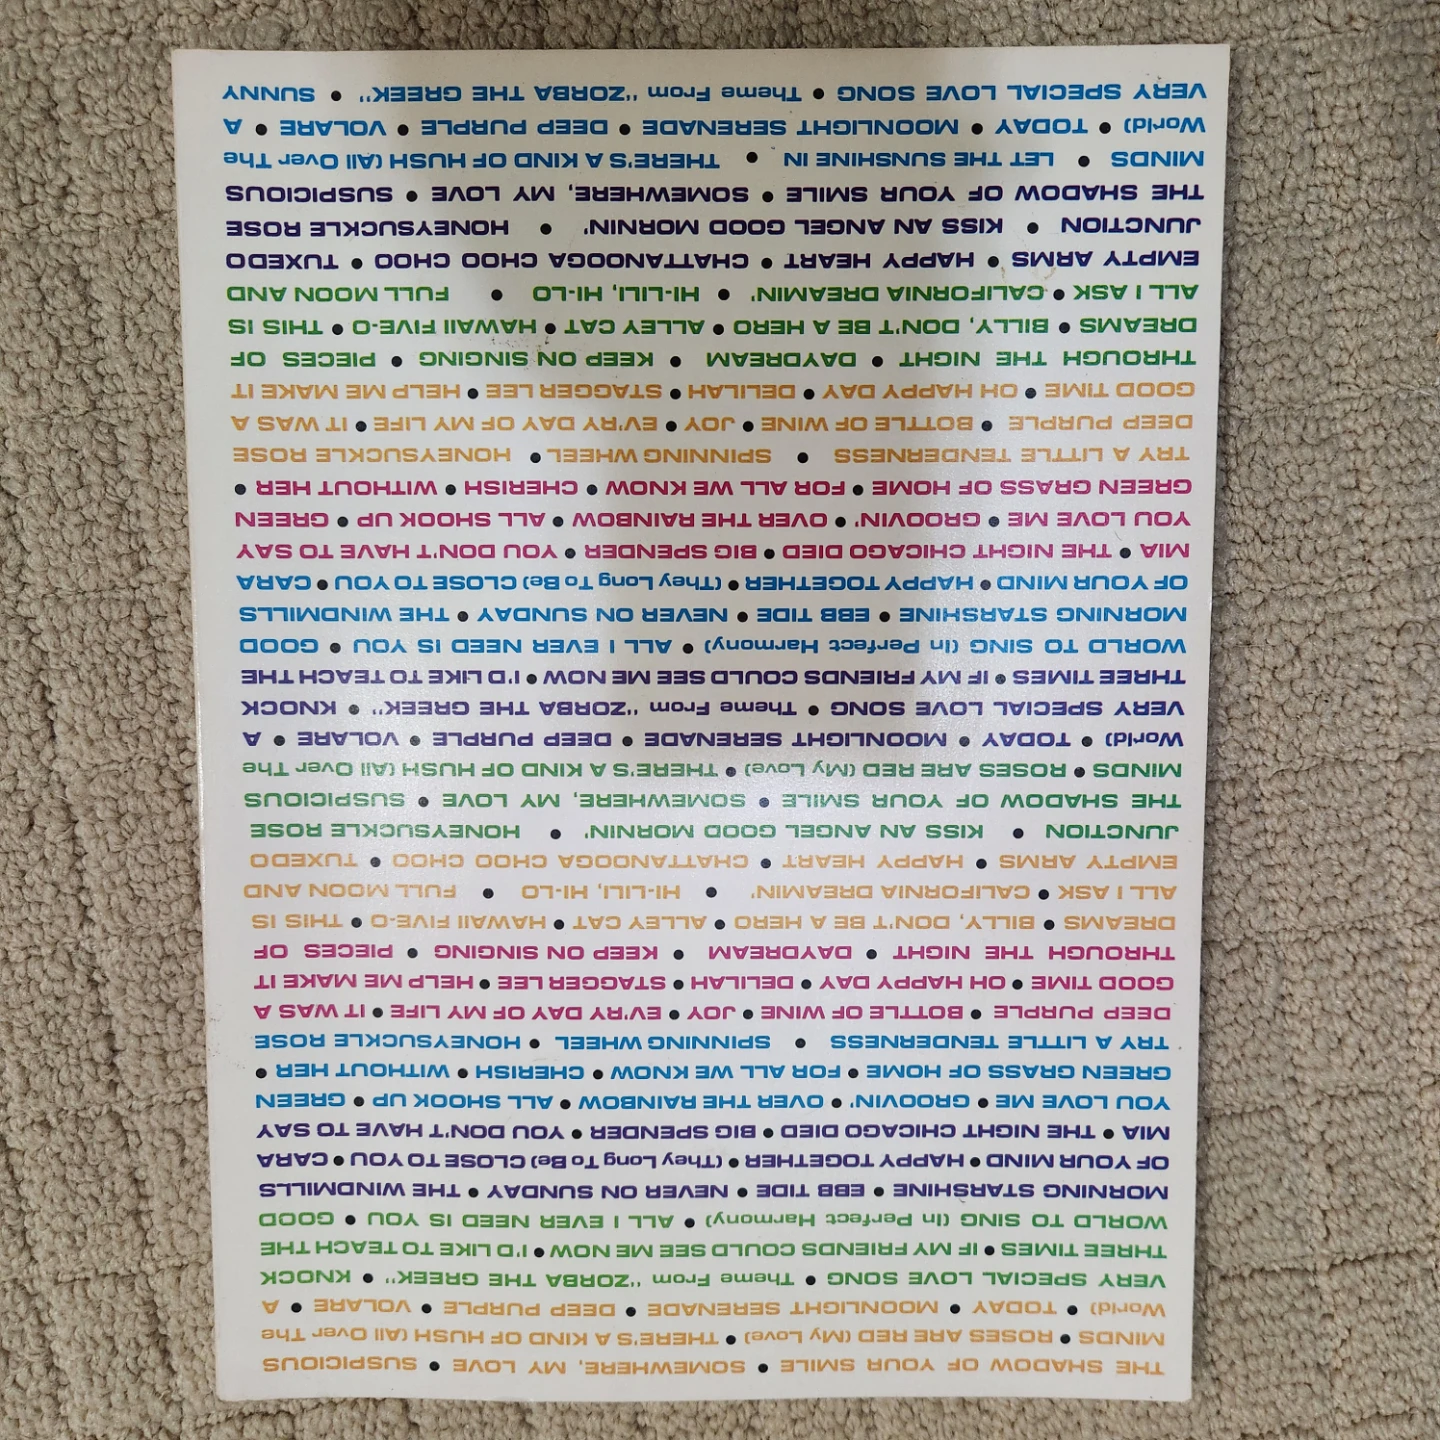 THE SHADOW OF YOUR SMILE • SOMEWHERE, MY LOVE • SUSPICIOUS
MINDS • ROSES ARE RED (My Love) • THERE'S A KIND OF HUSH (All Over The
World) • TODAY • MOONLIGHT SERENADE • DEEP PURPLE • VOLARE • A
VERY SPECIAL LOVE SONG • Theme From "ZORBA THE GREEK" • KNOCK
THREE TIMES • IF MY FRIENDS COULD SEE ME NOW • I'D LIKE TO TEACH THE
WORLD TO SING (In Perfect Harmony) • ALL I EVER NEED IS YOU • GOOD
MORNING STARSHINE • EBB TIDE • NEVER ON SUNDAY • THE WINDMILLS
OF YOUR MIND • HAPPY TOGETHER • (They Long To Be) CLOSE TO YOU • CARA
MIA • THE NIGHT CHICAGO DIED • BIG SPENDER • YOU DON'T HAVE TO SAY
YOU LOVE ME • GROOVIN' • OVER THE RAINBOW • ALL SHOOK UP • GREEN
GREEN GRASS OF HOME • FOR ALL WE KNOW • CHERISH • WITHOUT HER •
TRY A LITTLE TENDERNESS • SPINNING WHEEL • HONEYSUCKLE ROSE
DEEP PURPLE • BOTTLE OF WINE • JOY • EV'RY DAY OF MY LIFE • IT WAS A
GOOD TIME • OH HAPPY DAY • DELILAH • STAGGER LEE • HELP ME MAKE IT
THROUGH THE NIGHT • DAYDREAM • KEEP ON SINGING • PIECES OF
DREAMS • BILLY, DON'T BE A HERO • ALLEY CAT • HAWAII FIVE-O • THIS IS
ALL I ASK • CALIFORNIA DREAMIN' • HI-LILI, HI-LO • FULL MOON AND
EMPTY ARMS • HAPPY HEART • CHATTANOOGA CHOO CHOO • TUXEDO
JUNCTION • KISS AN ANGEL GOOD MORNIN' • HONEYSUCKLE ROSE
THE SHADOW OF YOUR SMILE • SOMEWHERE, MY LOVE • SUSPICIOUS
MINDS • ROSES ARE RED (My Love) • THERE'S A KIND OF HUSH (All Over The
World) • TODAY • MOONLIGHT SERENADE • DEEP PURPLE • VOLARE • A
VERY SPECIAL LOVE SONG • Theme From "ZORBA THE GREEK" • KNOCK
THREE TIMES • IF MY FRIENDS COULD SEE ME NOW • I'D LIKE TO TEACH THE
WORLD TO SING (In Perfect Harmony) • ALL I EVER NEED IS YOU • GOOD
MORNING STARSHINE • EBB TIDE • NEVER ON SUNDAY • THE WINDMILLS
OF YOUR MIND • HAPPY TOGETHER • (They Long To Be) CLOSE TO YOU • CARA
MIA • THE NIGHT CHICAGO DIED • BIG SPENDER • YOU DON'T HAVE TO SAY
YOU LOVE ME • GROOVIN' • OVER THE RAINBOW • ALL SHOOK UP • GREEN
GREEN GRASS OF HOME • FOR ALL WE KNOW • CHERISH • WITHOUT HER •
TRY A LITTLE TENDERNESS • SPINNING WHEEL • HONEYSUCKLE ROSE
DEEP PURPLE • BOTTLE OF WINE • JOY • EV'RY DAY OF MY LIFE • IT WAS A
GOOD TIME • OH HAPPY DAY • DELILAH • STAGGER LEE • HELP ME MAKE IT
THROUGH THE NIGHT • DAYDREAM • KEEP ON SINGING • PIECES OF
DREAMS • BILLY, DON'T BE A HERO • ALLEY CAT • HAWAII FIVE-O • THIS IS
ALL I ASK • CALIFORNIA DREAMIN' • HI-LILI, HI-LO • FULL MOON AND
EMPTY ARMS • HAPPY HEART • CHATTANOOGA CHOO CHOO • TUXEDO
JUNCTION • KISS AN ANGEL GOOD MORNIN' • HONEYSUCKLE ROSE
THE SHADOW OF YOUR SMILE • SOMEWHERE, MY LOVE • SUSPICIOUS
MINDS • LET THE SUNSHINE IN • THERE'S A KIND OF HUSH (All Over The
World) • TODAY • MOONLIGHT SERENADE • DEEP PURPLE • VOLARE • A
VERY SPECIAL LOVE SONG • Theme From "ZORBA THE GREEK" • SUNNY